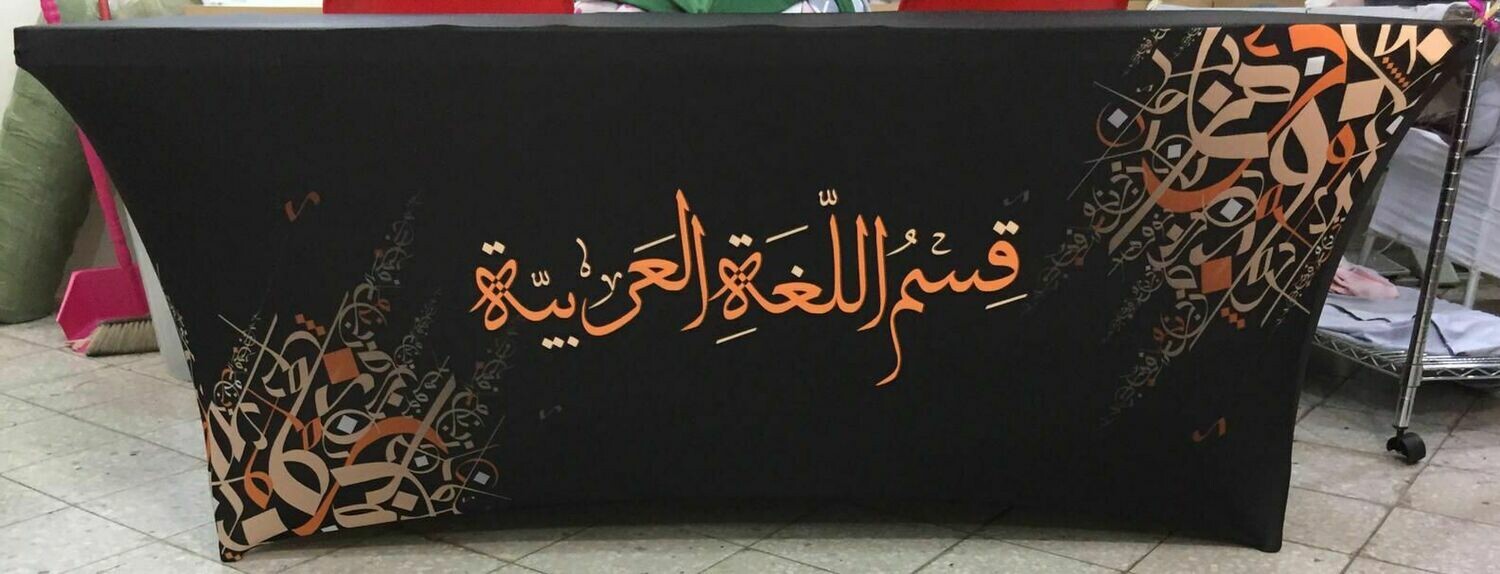 قِسْمُ اللّغَةِ العَرَبيّة